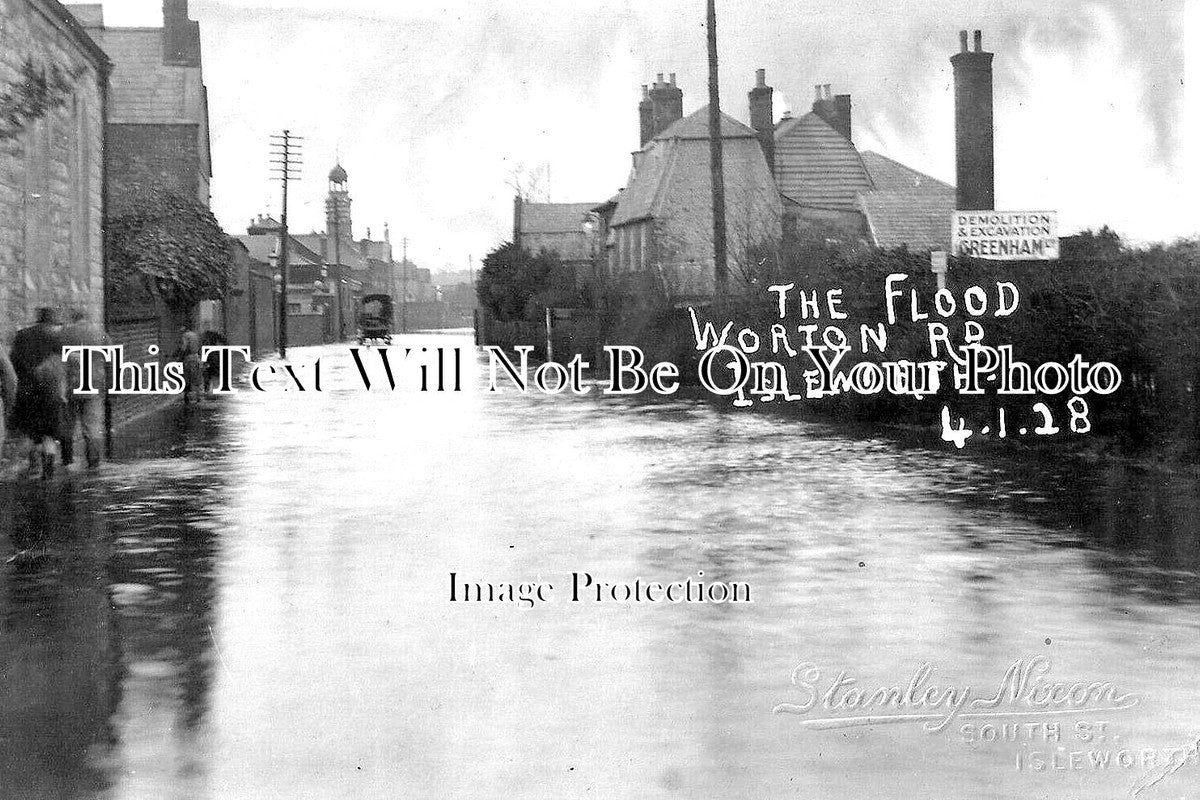 DEMOLITION
& EXCAVATION
GREENHAM LTD
THE FLOOD
WORTON RD
ISLEWORTH
4.1.28
This Text Will Not Be On Your Photo
Image Protection
Stanley Nixon
SOUTH ST.
ISLEWORTH